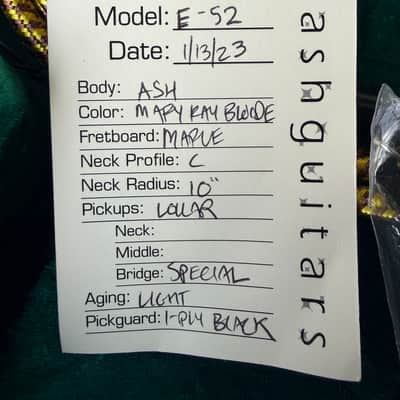 Model: E-52
Date: 1/13/23
Body: ASH
Color: MARY KAY BLONDE
Fretboard: MAPLE
Neck Profile: C
Neck Radius: 10"
Pickups: LOLLAR
Neck:
Middle:
Bridge: SPECIAL
Aging: LIGHT
Pickguard: 1-PLY BLACK
ashguitars